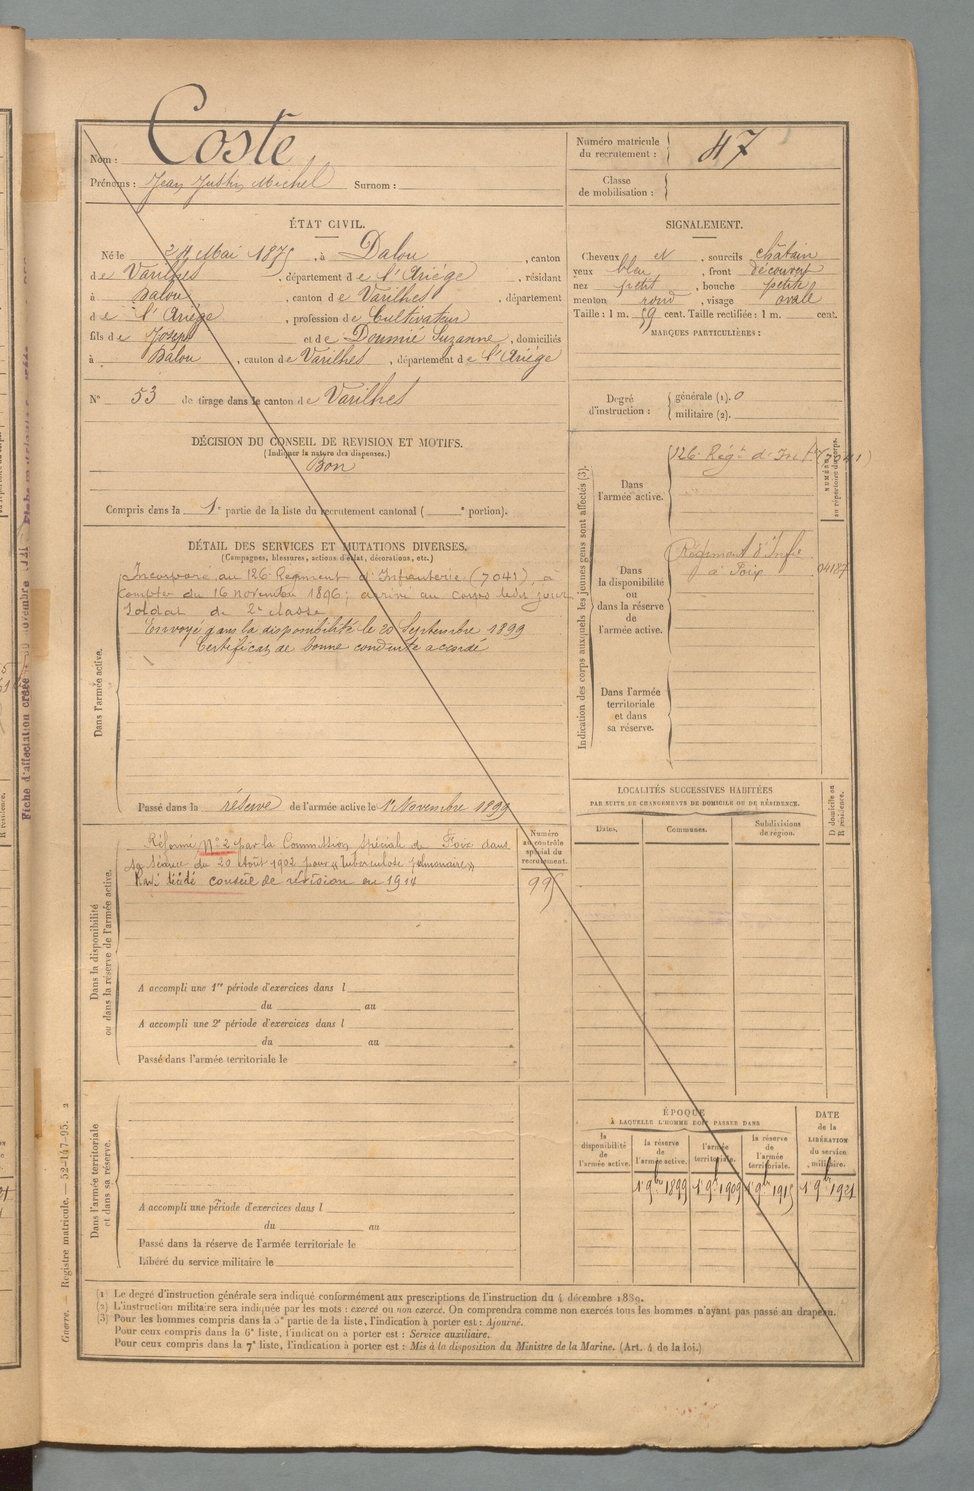 Nom : Coste
Prénoms : Jean Justin Michel Surnom :
Numéro matricule
du recrutement : 47
Classe
de mobilisation :
ÉTAT CIVIL.
Né le 24 Mai 1875, à Dalou, canton
de Varilhes, département de l'Ariége, résidant
à Dalou, canton de Varilhes, département
de l'Ariége, profession de Cultivateur
fils de Joseph et de Doumié Suzanne, domiciliés
à Dalou, canton de Varilhes, département de l'Ariége
N° 53 de tirage dans le canton de Varilhes
SIGNALEMENT.
Cheveux N, sourcils châtain
yeux bleu, front découvert
nez petit, bouche petite
menton rond, visage ovale
Taille : 1 m. 59 cent. Taille rectifiée : 1 m. cent.
MARQUES PARTICULIÈRES :
Degré
d'instruction :
générale (1). 0
militaire (2).
DÉCISION DU CONSEIL DE REVISION ET MOTIFS.
(Indiquer la nature des dispenses.)
Bon
Compris dans la 1e partie de la liste du recrutement cantonal ( e portion).
DÉTAIL DES SERVICES ET MUTATIONS DIVERSES.
(Campagnes, blessures, actions d'éclat, décorations, etc.)
Dans l'armée active.
Incorporé au 126e Regiment d'Infanterie (7041), à
compter du 16 novembre 1896; arrivé au corps ledit jour
Soldat de 2e classe
Envoyé dans la disponibilité le 20 Septembre 1899
Certificat de bonne conduite accordé
Passé dans la réserve de l'armée active le 1er Novembre 1899
Indication des corps auxquels les jeunes gens sont affectés (3).
NUMÉRO
au répertoire du corps.
Dans
l'armée active.
126e Régt d'Infie (7041)
Dans
la disponibilité
ou
dans la réserve
de
l'armée active.
Régiment d'Infie
à Foix
Dans l'armée
territoriale
et dans
sa réserve.
LOCALITÉS SUCCESSIVES HABITÉES
PAR SUITE DE CHANGEMENTS DE DOMICILE OU DE RÉSIDENCE.
Dates.
Communes.
Subdivisions
de région.
D domicile ou
R résidence.
Dans la disponibilité
ou dans la réserve de l'armée active.
Réformé N° 2 par la Commission Spéciale de Foix dans
sa Séance du 20 Août 1902 pour « Tuberculose pulmonaire »
conseil de révision en 1914
Numéro
au contrôle
spécial du
recrutement.
A accompli une 1re période d'exercices dans l
du au
A accompli une 2e période d'exercices dans l
du au
Passé dans l'armée territoriale le
Dans l'armée territoriale
et dans sa réserve.
A accompli une période d'exercices dans l
du au
Passé dans la réserve de l'armée territoriale le
Libéré du service militaire le
ÉPOQUE
À LAQUELLE L'HOMME DOIT PASSER DANS
la
disponibilité
de
l'armée active.
la réserve
de
l'armée active.
l'armée
territoriale.
la réserve
de
l'armée
territoriale.
DATE
de la
LIBÉRATION
du service
militaire.
1er 9bre 1899 1er 9bre 1909 1er 9bre 1915 1er 9bre 1921
(1) Le degré d'instruction générale sera indiqué conformément aux prescriptions de l'instruction du 4 décembre 1889.
(2) L'instruction militaire sera indiquée par les mots : exercé ou non exercé. On comprendra comme non exercés tous les hommes n'ayant pas passé au drapeau.
(3) Pour les hommes compris dans la 5e partie de la liste, l'indication à porter est : Ajourné.
Pour ceux compris dans la 6e liste, l'indication à porter est : Service auxiliaire.
Pour ceux compris dans la 7e liste, l'indication à porter est : Mis à la disposition du Ministre de la Marine. (Art. 4 de la loi.)
Guerre. — Registre matricule. — 52-147-95. 2